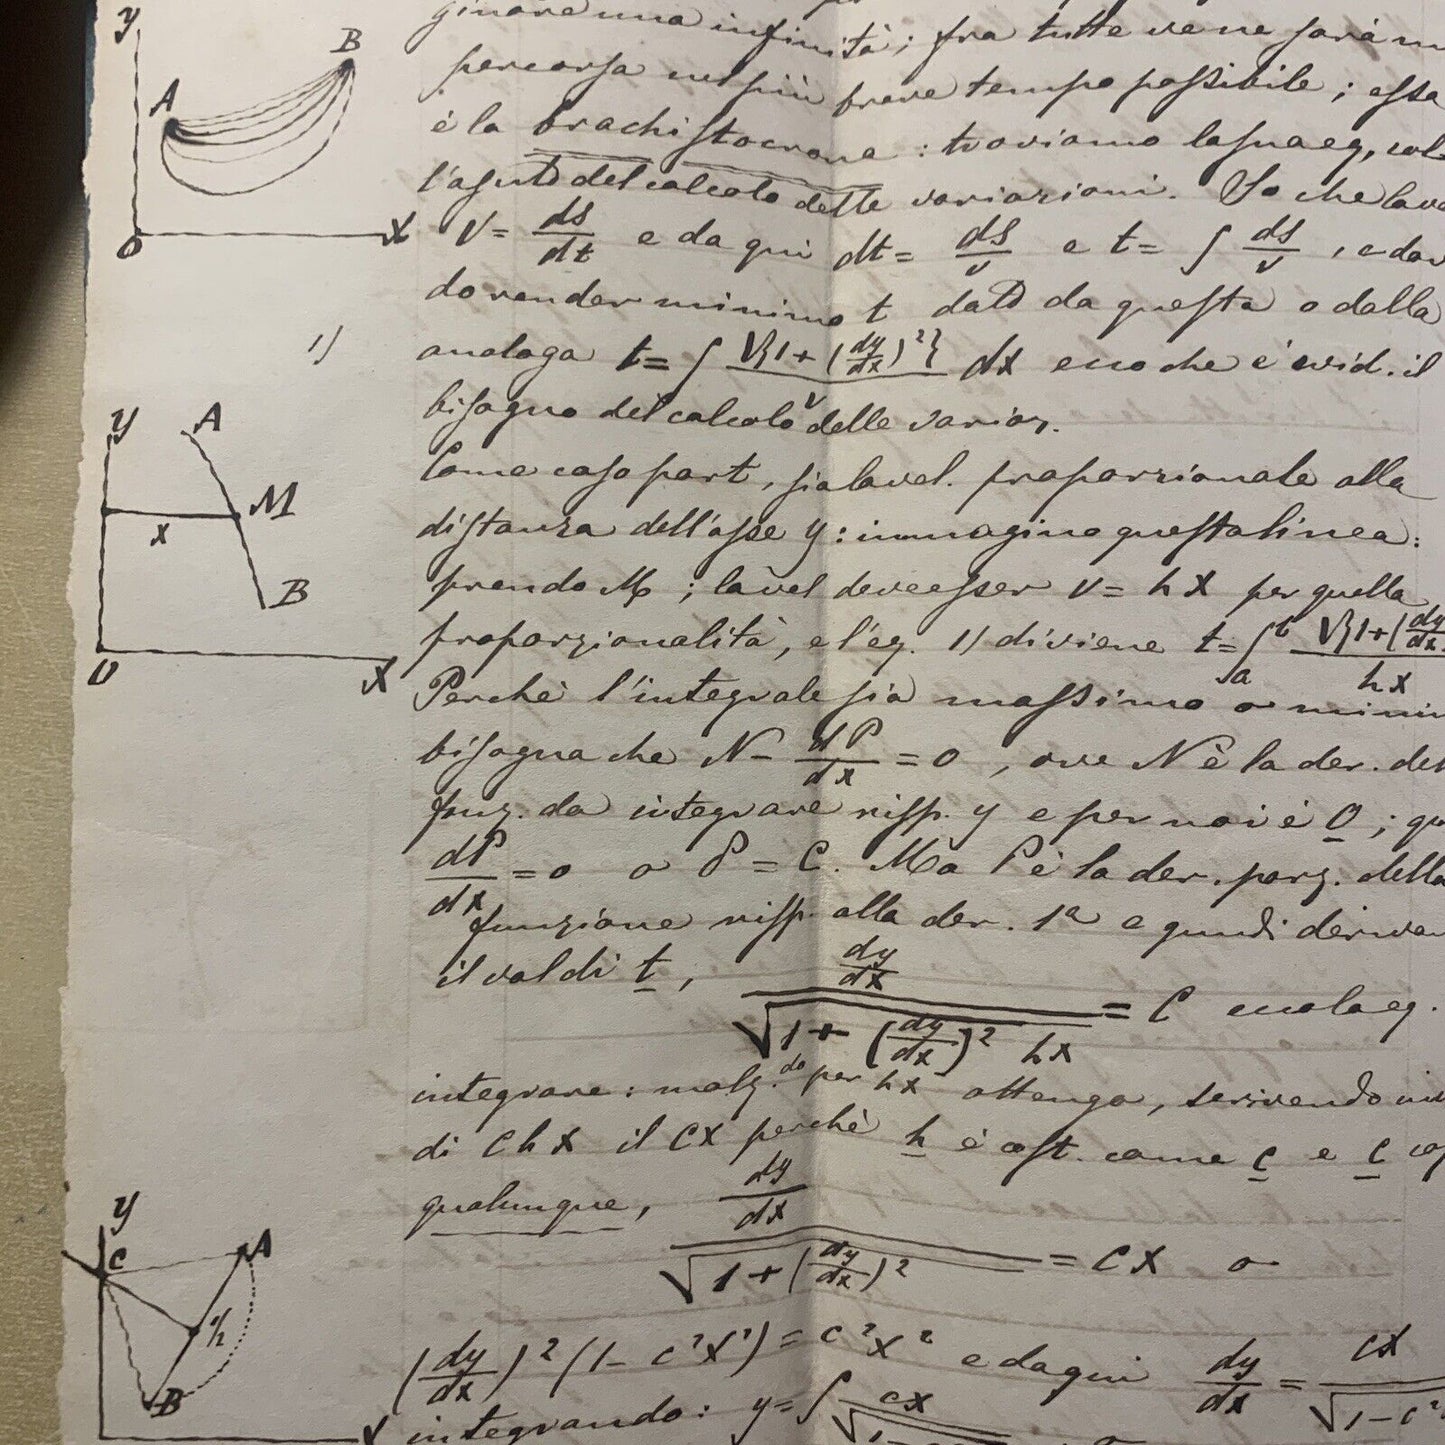 y
B
A
O
X
ginare una infinità; fra tutte ve ne sarà
percorsa nel più breve tempo possibile; essa
è la brachistocrona: troviamo la sua eq. col
l'ajuto del calcolo delle variazioni. So che la
V = dS/dt e da qui dt = dS/v e t = ∫ dS/v, e do
do render minimo t dato da questa o dalla
1) analoga t = ∫ √{1 + (dy/dx)²}/v dx è evid. il
bisogno del calcolo delle varioz.
Come caso part, sia la vel. proporzionale alla
distanza dell'asse y: immagino questa linea:
prendo M; la vel deve esser v = hx per quella
proporzionalità, e l'eq. 1) diviene t = ∫ₐᵇ √{1 + (dy/dx
hx
y
A
M
x
B
O
X
Perchè l'integrale sia massimo o minim
bisogna che N - dP/dx = 0, ove N è la der. del
funz. da integrare risp. y e per noi è 0; qu
dP/dx = 0 o P = C. Ma P è la der. parz. della
funzione risp. alla der. 1ª e quindi deriva
il val di t,
dy/dx / √1 + (dy/dx)² hx = C eq.
integrare: molt.do per hx ottengo, scrivendo inv
di Chx il Cx perchè h è cost. come c e C
qualunque,
dy/dx / √1 + (dy/dx)² = cx o
(dy/dx)² (1 - c²x²) = c²x² e da qui dy/dx = cx/√1 - c²
integrando: y = ∫ cx/√1
y
C
A
1/2
B
X